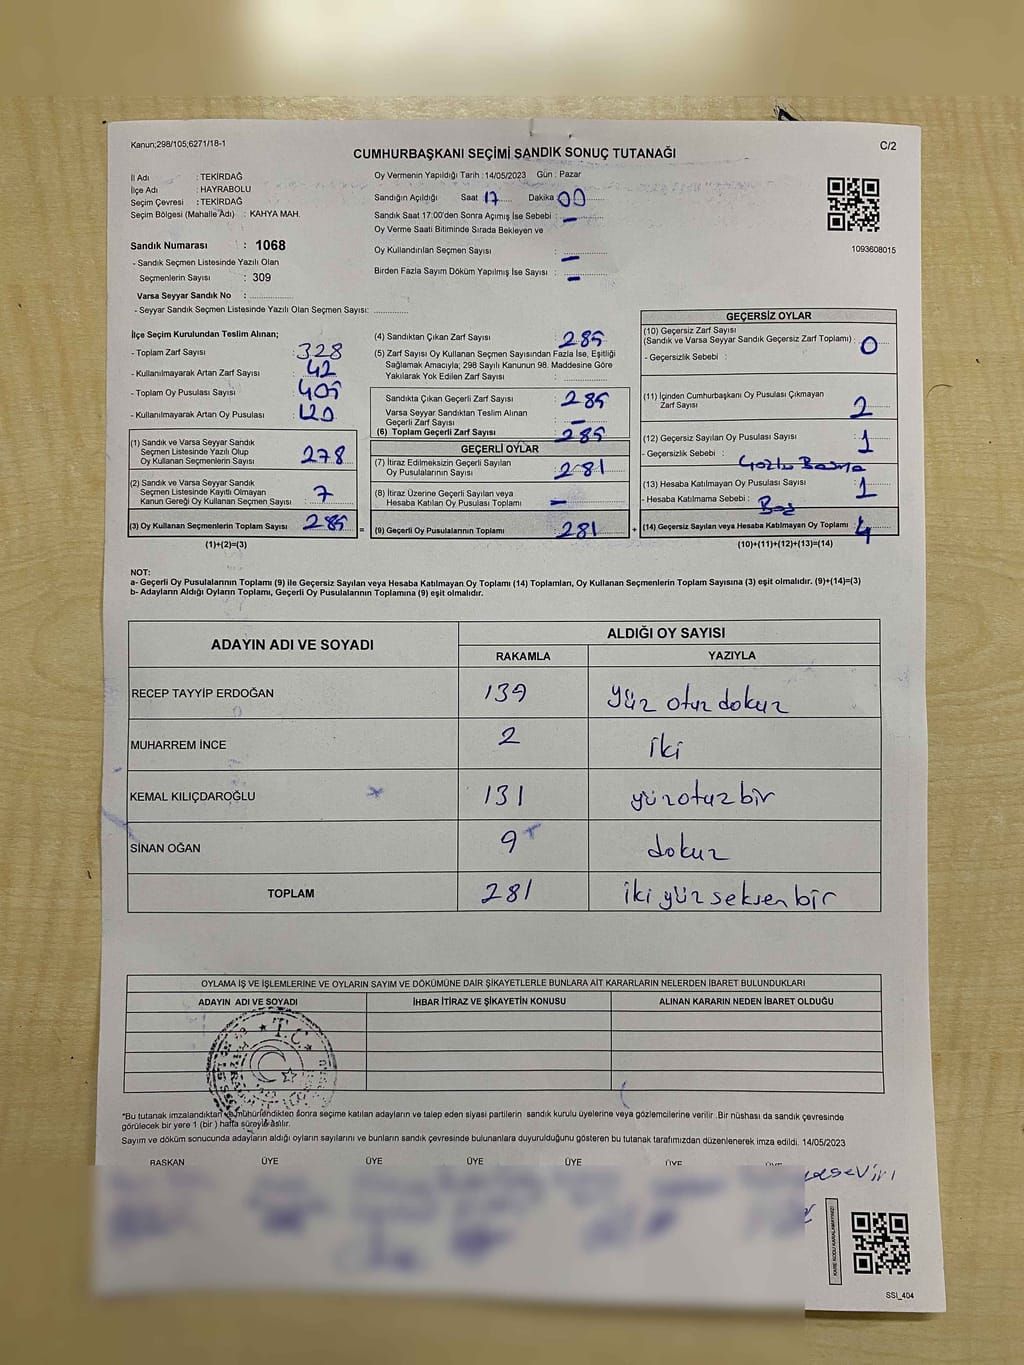 Kanun;298/105;6271/18-1
C/2
CUMHURBAŞKANI SEÇİMİ SANDIK SONUÇ TUTANAĞI
İl Adı : TEKİRDAĞ
İlçe Adı : HAYRABOLU
Seçim Çevresi : TEKİRDAĞ
Seçim Bölgesi (Mahalle Adı) : KAHYA MAH.
Sandık Numarası : 1068
- Sandık Seçmen Listesinde Yazılı Olan
Seçmenlerin Sayısı : 309
Varsa Seyyar Sandık No :
- Seyyar Sandık Seçmen Listesinde Yazılı Olan Seçmen Sayısı:
Oy Vermenin Yapıldığı Tarih : 14/05/2023 Gün : Pazar
Sandığın Açıldığı Saat 17 Dakika 00
Sandık Saat 17:00'den Sonra Açımış İse Sebebi : -
Oy Verme Saati Bitiminde Sırada Bekleyen ve
Oy Kullandırılan Seçmen Sayısı : -
Birden Fazla Sayım Döküm Yapılmış İse Sayısı : -
1093608015
İlçe Seçim Kurulundan Teslim Alınan;
- Toplam Zarf Sayısı : 328
- Kullanılmayarak Artan Zarf Sayısı : 42
- Toplam Oy Pusulası Sayısı : 405
- Kullanılmayarak Artan Oy Pusulası : 120
(1) Sandık ve Varsa Seyyar Sandık
Seçmen Listesinde Yazılı Olup
Oy Kullanan Seçmenlerin Sayısı : 278
(2) Sandık ve Varsa Seyyar Sandık
Seçmen Listesinde Kayıtlı Olmayan
Kanun Gereği Oy Kullanan Seçmen Sayısı : 7
(3) Oy Kullanan Seçmenlerin Toplam Sayısı : 285
(1)+(2)=(3)
(4) Sandıktan Çıkan Zarf Sayısı : 285
(5) Zarf Sayısı Oy Kullanan Seçmen Sayısından Fazla İse, Eşitliği
Sağlamak Amacıyla; 298 Sayılı Kanunun 98. Maddesine Göre
Yakılarak Yok Edilen Zarf Sayısı :
Sandıkta Çıkan Geçerli Zarf Sayısı : 285
Varsa Seyyar Sandıktan Teslim Alınan
Geçerli Zarf Sayısı : -
(6) Toplam Geçerli Zarf Sayısı : 285
GEÇERLİ OYLAR
(7) İtiraz Edilmeksizin Geçerli Sayılan
Oy Pusulalarının Sayısı : 281
(8) İtiraz Üzerine Geçerli Sayılan veya
Hesaba Katılan Oy Pusulası Toplamı : -
(9) Geçerli Oy Pusulalarının Toplamı : 281
GEÇERSİZ OYLAR
(10) Geçersiz Zarf Sayısı
(Sandık ve Varsa Seyyar Sandık Geçersiz Zarf Toplamı) : 0
- Geçersizlik Sebebi :
(11) İçinden Cumhurbaşkanı Oy Pusulası Çıkmayan
Zarf Sayısı : 2
(12) Geçersiz Sayılan Oy Pusulası Sayısı : 1
- Geçersizlik Sebebi : Fazla Basma
(13) Hesaba Katılmayan Oy Pusulası Sayısı : 1
- Hesaba Katılmama Sebebi : Boş
(14) Geçersiz Sayılan veya Hesaba Katılmayan Oy Toplamı : 4
(10)+(11)+(12)+(13)=(14)
NOT:
a- Geçerli Oy Pusulalarının Toplamı (9) ile Geçersiz Sayılan veya Hesaba Katılmayan Oy Toplamı (14) Toplamları, Oy Kullanan Seçmenlerin Toplam Sayısına (3) eşit olmalıdır. (9)+(14)=(3)
b- Adayların Aldığı Oyların Toplamı, Geçerli Oy Pusulalarının Toplamına (9) eşit olmalıdır.
ADAYIN ADI VE SOYADI ALDIĞI OY SAYISI
RAKAMLA YAZIYLA
RECEP TAYYİP ERDOĞAN 139 yüz otuz dokuz
MUHARREM İNCE 2 iki
KEMAL KILIÇDAROĞLU 131 yüzotuzbir
SİNAN OĞAN 9 dokuz
TOPLAM 281 iki yüz seksen bir
OYLAMA İŞ VE İŞLEMLERİNE VE OYLARIN SAYIM VE DÖKÜMÜNE DAİR ŞİKAYETLERLE BUNLARA AİT KARARLARIN NELERDEN İBARET BULUNDUKLARI
ADAYIN ADI VE SOYADI İHBAR İTİRAZ VE ŞİKAYETİN KONUSU ALINAN KARARIN NEDEN İBARET OLDUĞU
T.C.
*Bu tutanak imzalandıktan ve mühürlendikten sonra seçime katılan adayların ve talep eden siyasi partilerin sandık kurulu üyelerine veya gözlemcilerine verilir .Bir nüshası da sandık çevresinde
görülecek bir yere 1 (bir) hafta süreyle asılır.
Sayım ve döküm sonucunda adayların aldığı oyların sayılarını ve bunların sandık çevresinde bulunanlara duyurulduğunu gösteren bu tutanak tarafımızdan düzenlenerek imza edildi. 14/05/2023
BAŞKAN ÜYE ÜYE ÜYE ÜYE ÜYE ÜYE
KARE KODU KARALAMAYINIZ!
SSI_404